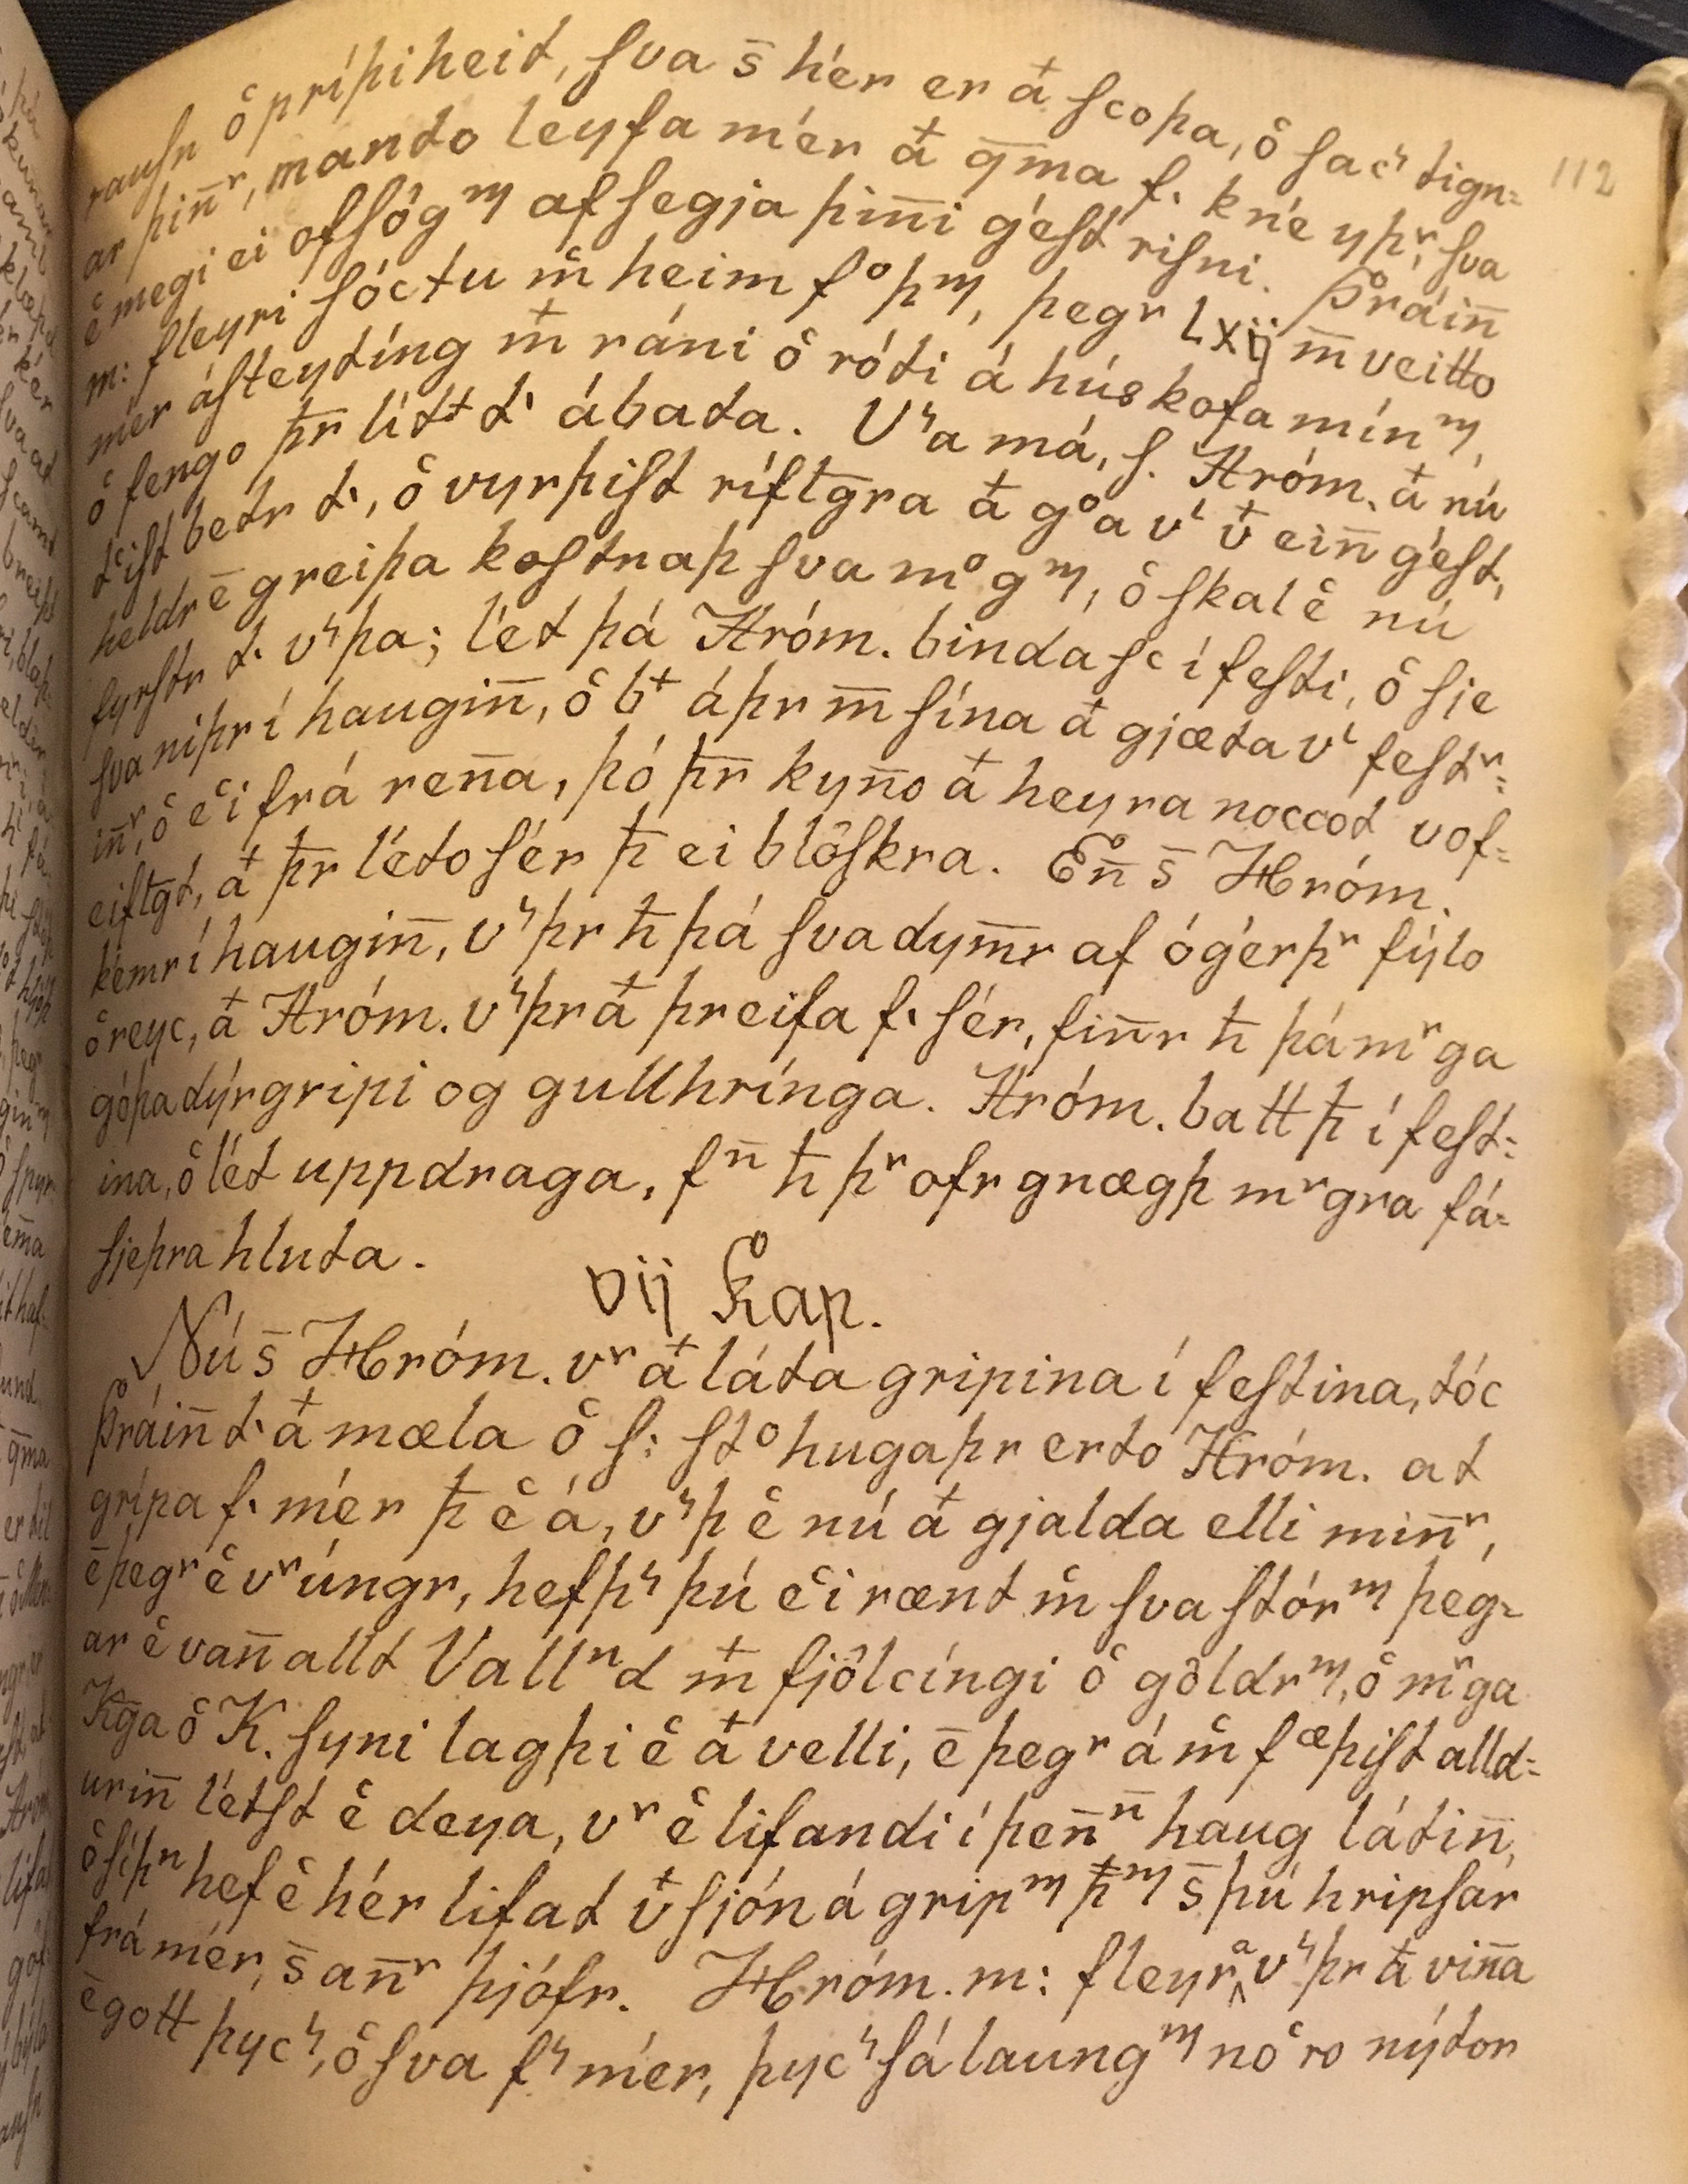 112
rausn o᷎ príþiheit, sva s̄ hér er at᷎ scoþa, o᷎ sac᷎ tign=
ar þin̄ʳ, mando leyfa mér at᷎ q̄ma f. kné yþʳ, sva
e᷎ megi ei ofsógᵐ af segja þin̄i gést risni. Þráin̄
m: fleyri sóctu m᷎ heim fᵒþᵐ, þegʳ Lxij m̄ veitto
mér ásteytíng m᷎ ráni o᷎ róti á húskofa mínᵐ,
o᷎ fengo þr̄ lítᵗ t' ábata. V᷎a má, s. Hróm. at᷎ nú
t᷎ist betr t', o᷎ vyrþist rífl̄gra at᷎ gᵒa vⁱ v᷎ ein̄ gést,
heldr ē greiþa kostnaþ sva mᵒgᵐ, o᷎ skal e᷎ nú
fyrstr t' v᷎þa; lét þá Hróm. binda sc í festi, o᷎ sje
sva niþr í haugin̄, o᷎ bᵗ áþr m̄ sína at᷎ gjæta vⁱ festʳ=
in̄ʳ, o᷎ e᷎i frá ren̄a, þó þr̄ kyn̄o at᷎ heyra noccot vof=
eifl̄gt, at᷎ þr̄ léto sér þ̄ ei blöskra. En̄ s̄ Hróm.
kémr í haugin̄, v᷎þr h̄ þá sva dym̄r af ógérþʳ fýlo
o᷎ reyc, at᷎ Hróm. v᷎þr at᷎ þreifa f. sér, fin̄r h̄ þá mʳga
góþa dýrgripi og gullhrínga. Hróm. batt þ̄ í fest=
ina, o᷎ lét uppdraga, fn̄ h̄ þʳ ofr gnægþ mʳgra fá=
sjeþra hluta.
vij Kap.
Nú s̄ Hróm. vʳ at᷎ láta gripina í festina, tóc
Þráin̄ t' at᷎ mæla o᷎ s: stᵒhugaþr erto Hróm. at
grípa f. mér þ̄ e᷎ á, v᷎þ e᷎ nú at᷎ gjalda elli min̄ʳ,
ē þegʳ e᷎ vʳ úngr, hefþ᷎ þú e᷎i rænt m᷎ sva stórᵐ þeg=
ar e᷎ van̄ allt Vallⁿd m᷎ fjölcíngi o᷎ göldrᵐ, o᷎ mʳga
Kḡa o᷎ K. syni lagþi e᷎ at᷎ velli, ē þegʳ á m᷎ fæþist alld=
urin̄ létst e᷎ deya, vʳ e᷎ lifandi í þen̄ⁿ haug látin̄,
o᷎ síþⁿ hef e᷎ hér lifat v᷎ sjón á gripᵐ þ̄ᵐ s̄ þú hripsar
frá mér, s̄ an̄ʳ þjófr. Hróm. m: fleyrᵃ v᷎þr at᷎ vin̄a
ē gott þyc᷎, o᷎ sva f᷎ mér, þyc᷎ sá laungᵐ no᷎ro nýtor